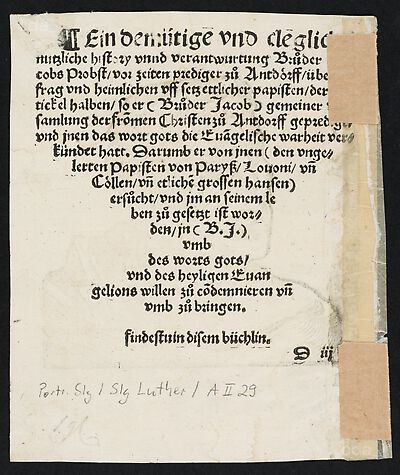 ¶ Ein demütige vnd cleglic
nutzliche history vnnd verantwurtung Brůder
cobs Probst/ vor zeiten prediger zů Antdörff/ übe
frag vnd heimlichen vff setz ettlicher papisten/ der
tickel halben/ so er ( Brůder Jacob ) gemeiner v
samlung der frõmen Christen zů Antdorff gepredige
vnd jnen das wort gots die Euãgelische warheit ver-
kündet hatt. Darumb er von jnen ( den vnge-
lerten Papisten von Paryß/ Louoni/ vñ
Cöllen/ vñ etlichẽ grossen hansen )
ersůcht/ vnd jm an seinem le
ben zů gesetzt ist wor-
den/ jn ( B. J. )
vmb
des worts gots/
vnd des heyligen Euan
gelions willen zů cõdemnieren vñ
vmb zů bringen.
findestu in disem büchlin.
D iij
Portr. Slg / Slg Luther / A II 29